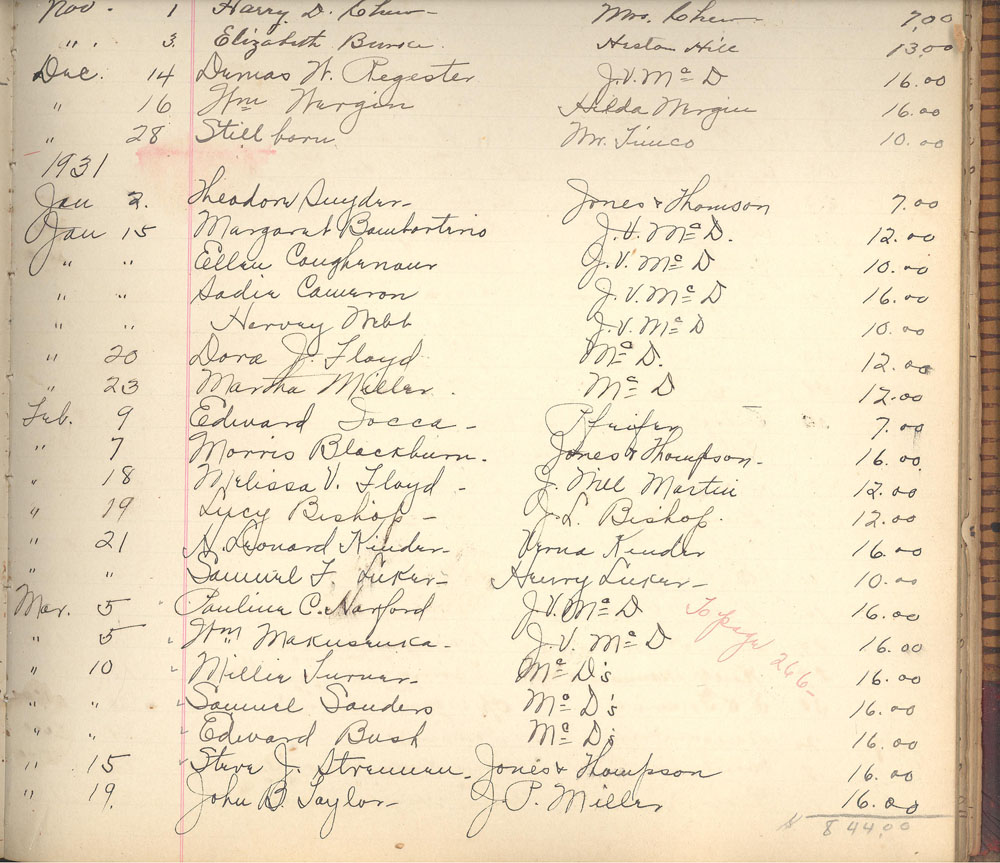 Nov. 1 Harry D. Chew - Mrs. Chew - 7.00
" . 3. Elizabeth Heston Hill 13.00
Dec. 14 Dumas W. Regester J.V. Mc D 16.00
" 16 Wm Wargin Hilda Wergin 16.00
" 28 Still born Mr. 10.00
1931
Jan 2. Theodore Snyder - Jones & Thomson 7.00
Jan 15 Margaret Bambortino J.V. Mc D. 12.00
" " Ellen Coughenour J.V. Mc D 10.00
" " Sadie Cameron J.V. Mc D 16.00
" " Harvey Webb J.V. Mc D 10.00
" 20 Dora J. Floyd Mc D. 12.00
" 23 Martha Miller. Mc D 12.00
Feb. 9 Edward - Pfeifer 7.00
" 7 Morris Blackburn. Jones & Thompson - 16.00
" 18 Melissa V. Floyd - J. Will Martin 12.00
" 19 Lucy Bishop - J. L. Bishop. 12.00
" 21 N. Leonard Kinder - Verna Kinder 16.00
" " Samuel F. Luker - Henry Luker - 10.00
Mar. 5 Pauline C. Harford J.V. Mc D 16.00
To page 266 -
" 5 Wm Makusenka - J.V. Mc D 16.00
" 10 Millie Turner - Mc D's 16.00
" " Samuel Sanders Mc D's 16.00
" " Edward Bush Mc D's 16.00
" 15 Steve J. - Jones & Thompson 16.00
" 19. John B. Taylor - J. P. Miller 16.00
$ 844.00